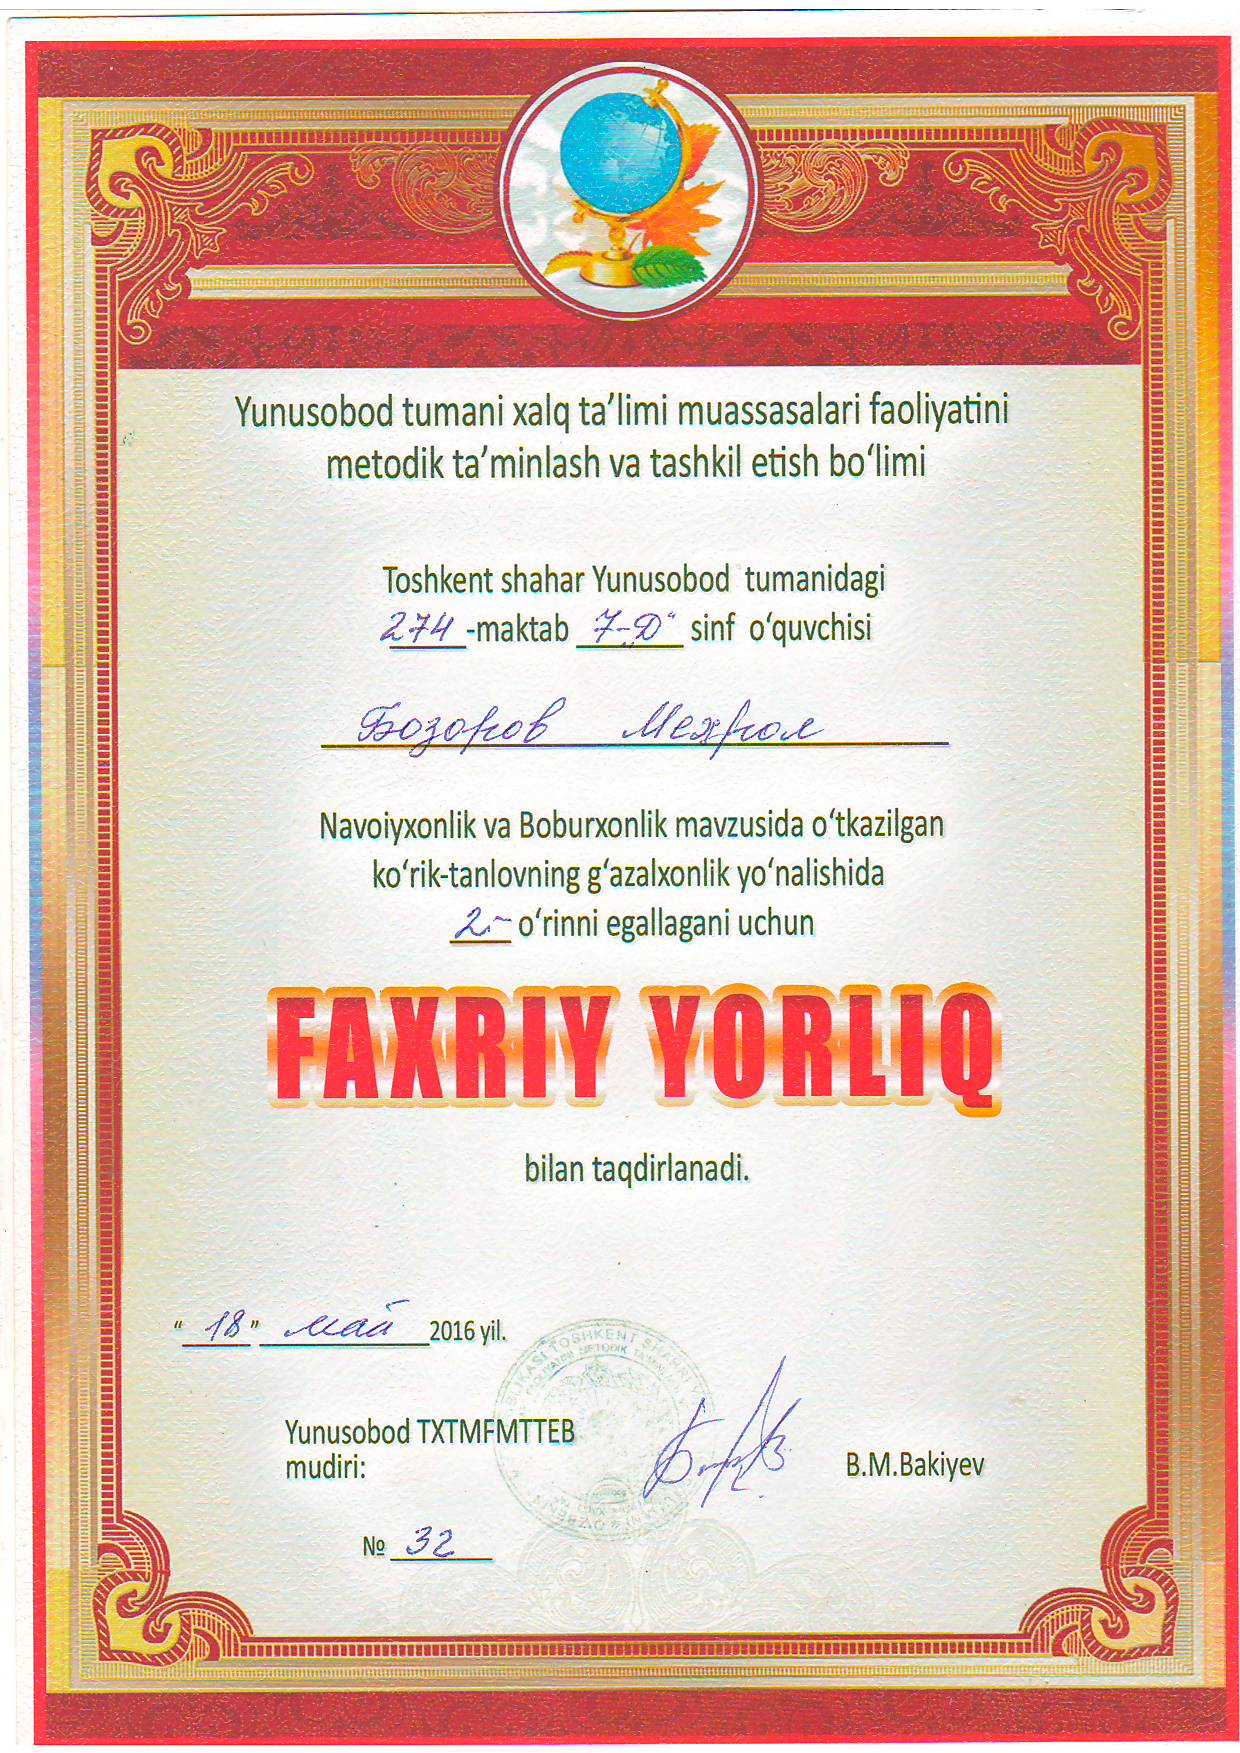 Yunusobod tumani xalq ta’limi muassasalari faoliyatini
metodik ta’minlash va tashkil etish bo‘limi
Toshkent shahar Yunusobod tumanidagi
274 -maktab 7-„D“ sinf o‘quvchisi
Бозоров Мехрол
Navoiyxonlik va Boburxonlik mavzusida o‘tkazilgan
ko‘rik-tanlovning g‘azalxonlik yo‘nalishida
2- o‘rinni egallagani uchun
FAXRIY YORLIQ
bilan taqdirlanadi.
“ 18 ” май 2016 yil.
Yunusobod TXTMFMTTEB
mudiri:
B.M.Bakiyev
№ 32